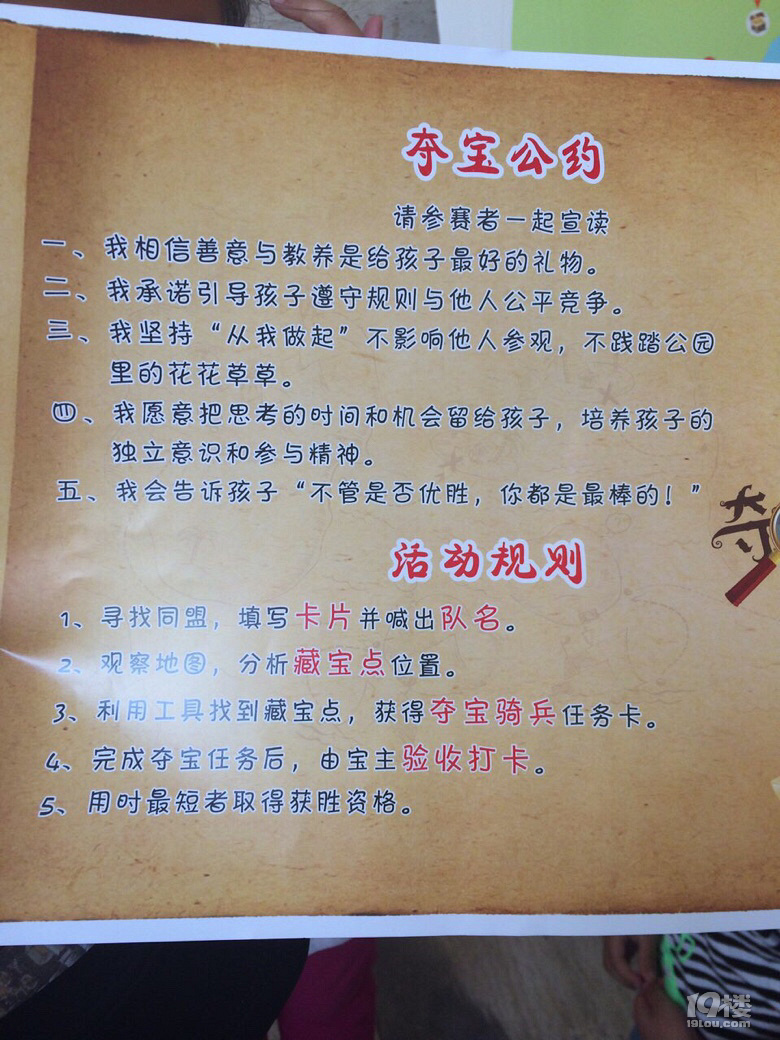 夺宝公约
请参赛者一起宣读
一、我相信善意与教养是给孩子最好的礼物。
二、我承诺引导孩子遵守规则与他人公平竞争。
三、我坚持“从我做起”不影响他人参观，不践踏公园
里的花花草草。
四、我愿意把思考的时间和机会留给孩子，培养孩子的
独立意识和参与精神。
五、我会告诉孩子“不管是否优胜，你都是最棒的！”
夺
活动规则
1、寻找同盟，填写卡片并喊出队名。
2、观察地图，分析藏宝点位置。
3、利用工具找到藏宝点，获得夺宝骑兵任务卡。
4、完成夺宝任务后，由宝主验收打卡。
5、用时最短者取得获胜资格。
19楼
19lou.com